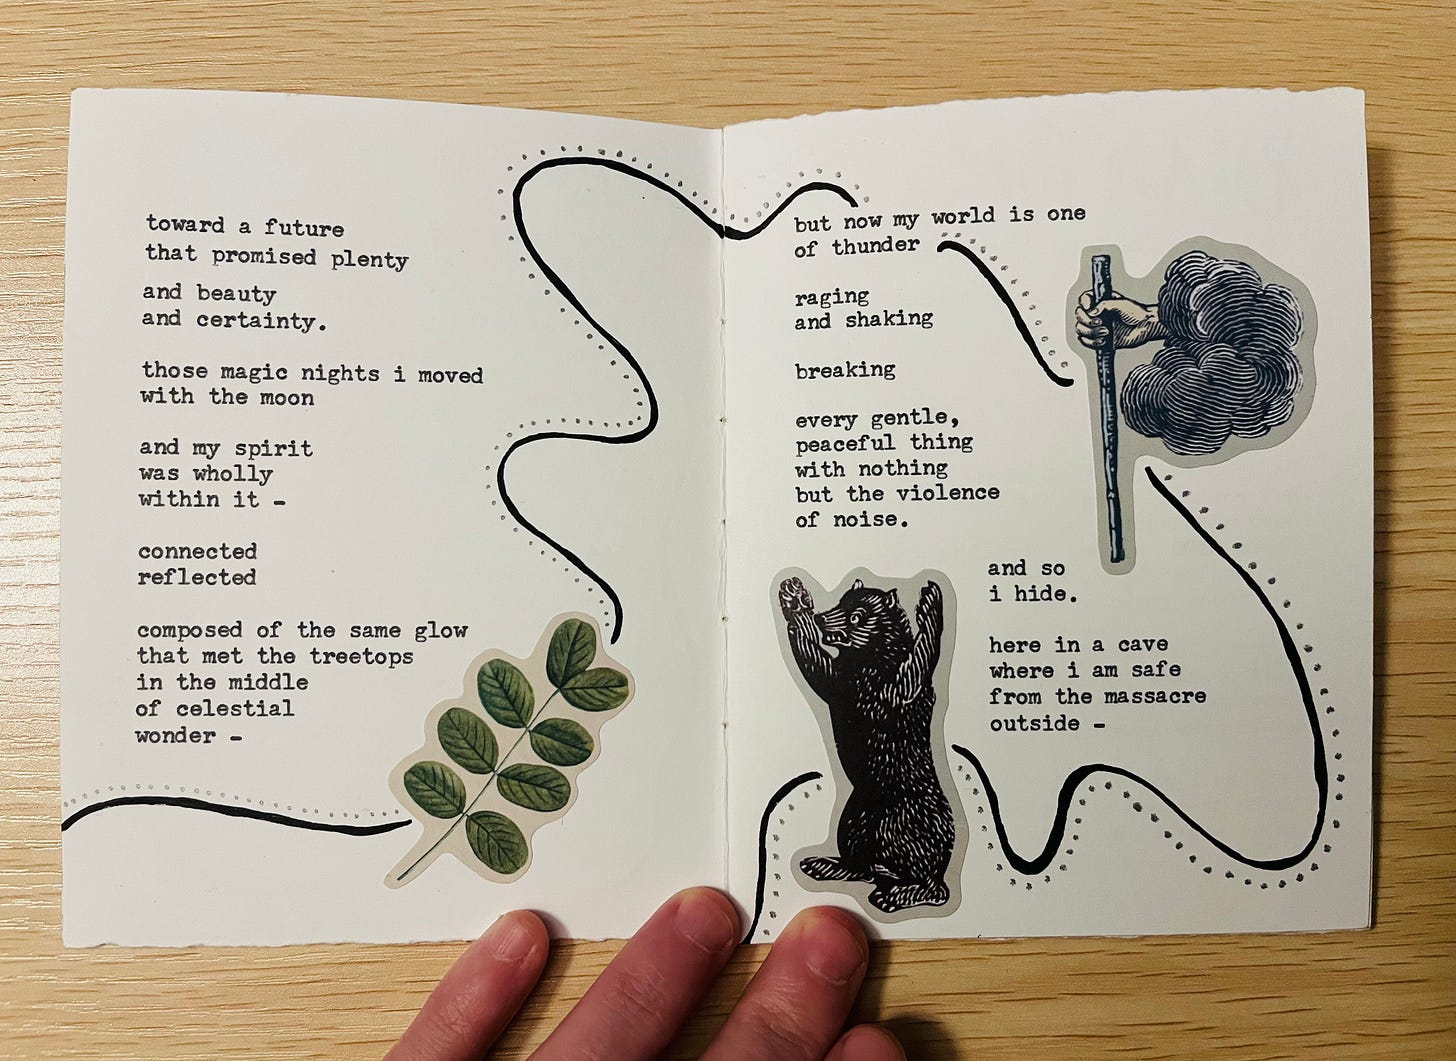 toward a future
that promised plenty
and beauty
and certainty.
those magic nights i moved
with the moon
and my spirit
was wholly
within it -
connected
reflected
composed of the same glow
that met the treetops
in the middle
of celestial
wonder -
but now my world is one
of thunder
raging
and shaking
breaking
every gentle,
peaceful thing
with nothing
but the violence
of noise.
and so
i hide.
here in a cave
where i am safe
from the massacre
outside -